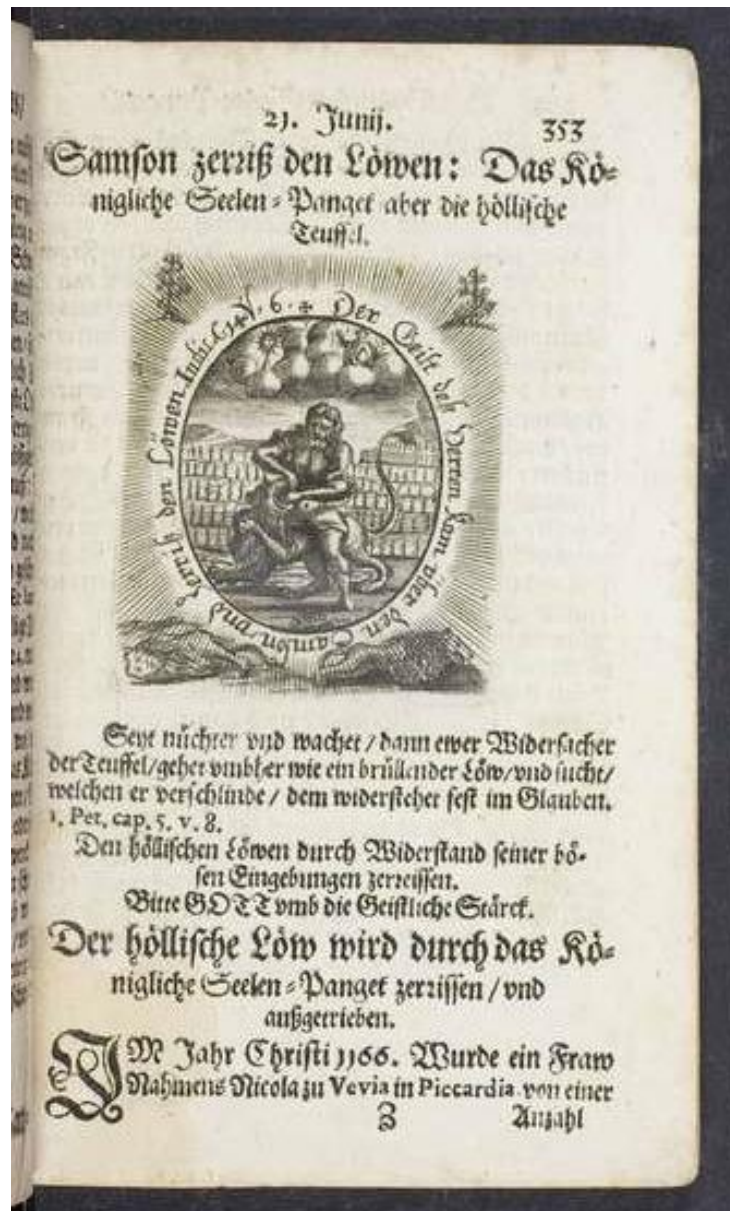 21. Junij. 353
Samson zerriß den Löwen: Das Kö-
nigliche Seelen-Panget aber die höllische
Teuffel.
Der Geist deß Herren kam über den Samson und zerriß den Löwen Iudic. c. 14. V. 6.
Seyt nüchter vnd wachet/dann ewer Widersacher
der Teuffel/gehet vmbher wie ein brüllender Löw/vnd sucht/
welchen er verschlinde/dem widerstehet fest im Glauben.
1. Pet. cap. 5. v. 8.
Den höllischen Löwen durch Widerstand seiner bö-
sen Eingebungen zerreissen.
Bitte GOTT vmb die Geistliche Stärck.
Der höllische Löw wird durch das Kö-
nigliche Seelen-Panget zerrissen/vnd
außgetrieben.
IM Jahr Christi 1166. Wurde ein Fraw
Nahmens Nicola zu Vevia in Piccardia von einer
Z Anzahl